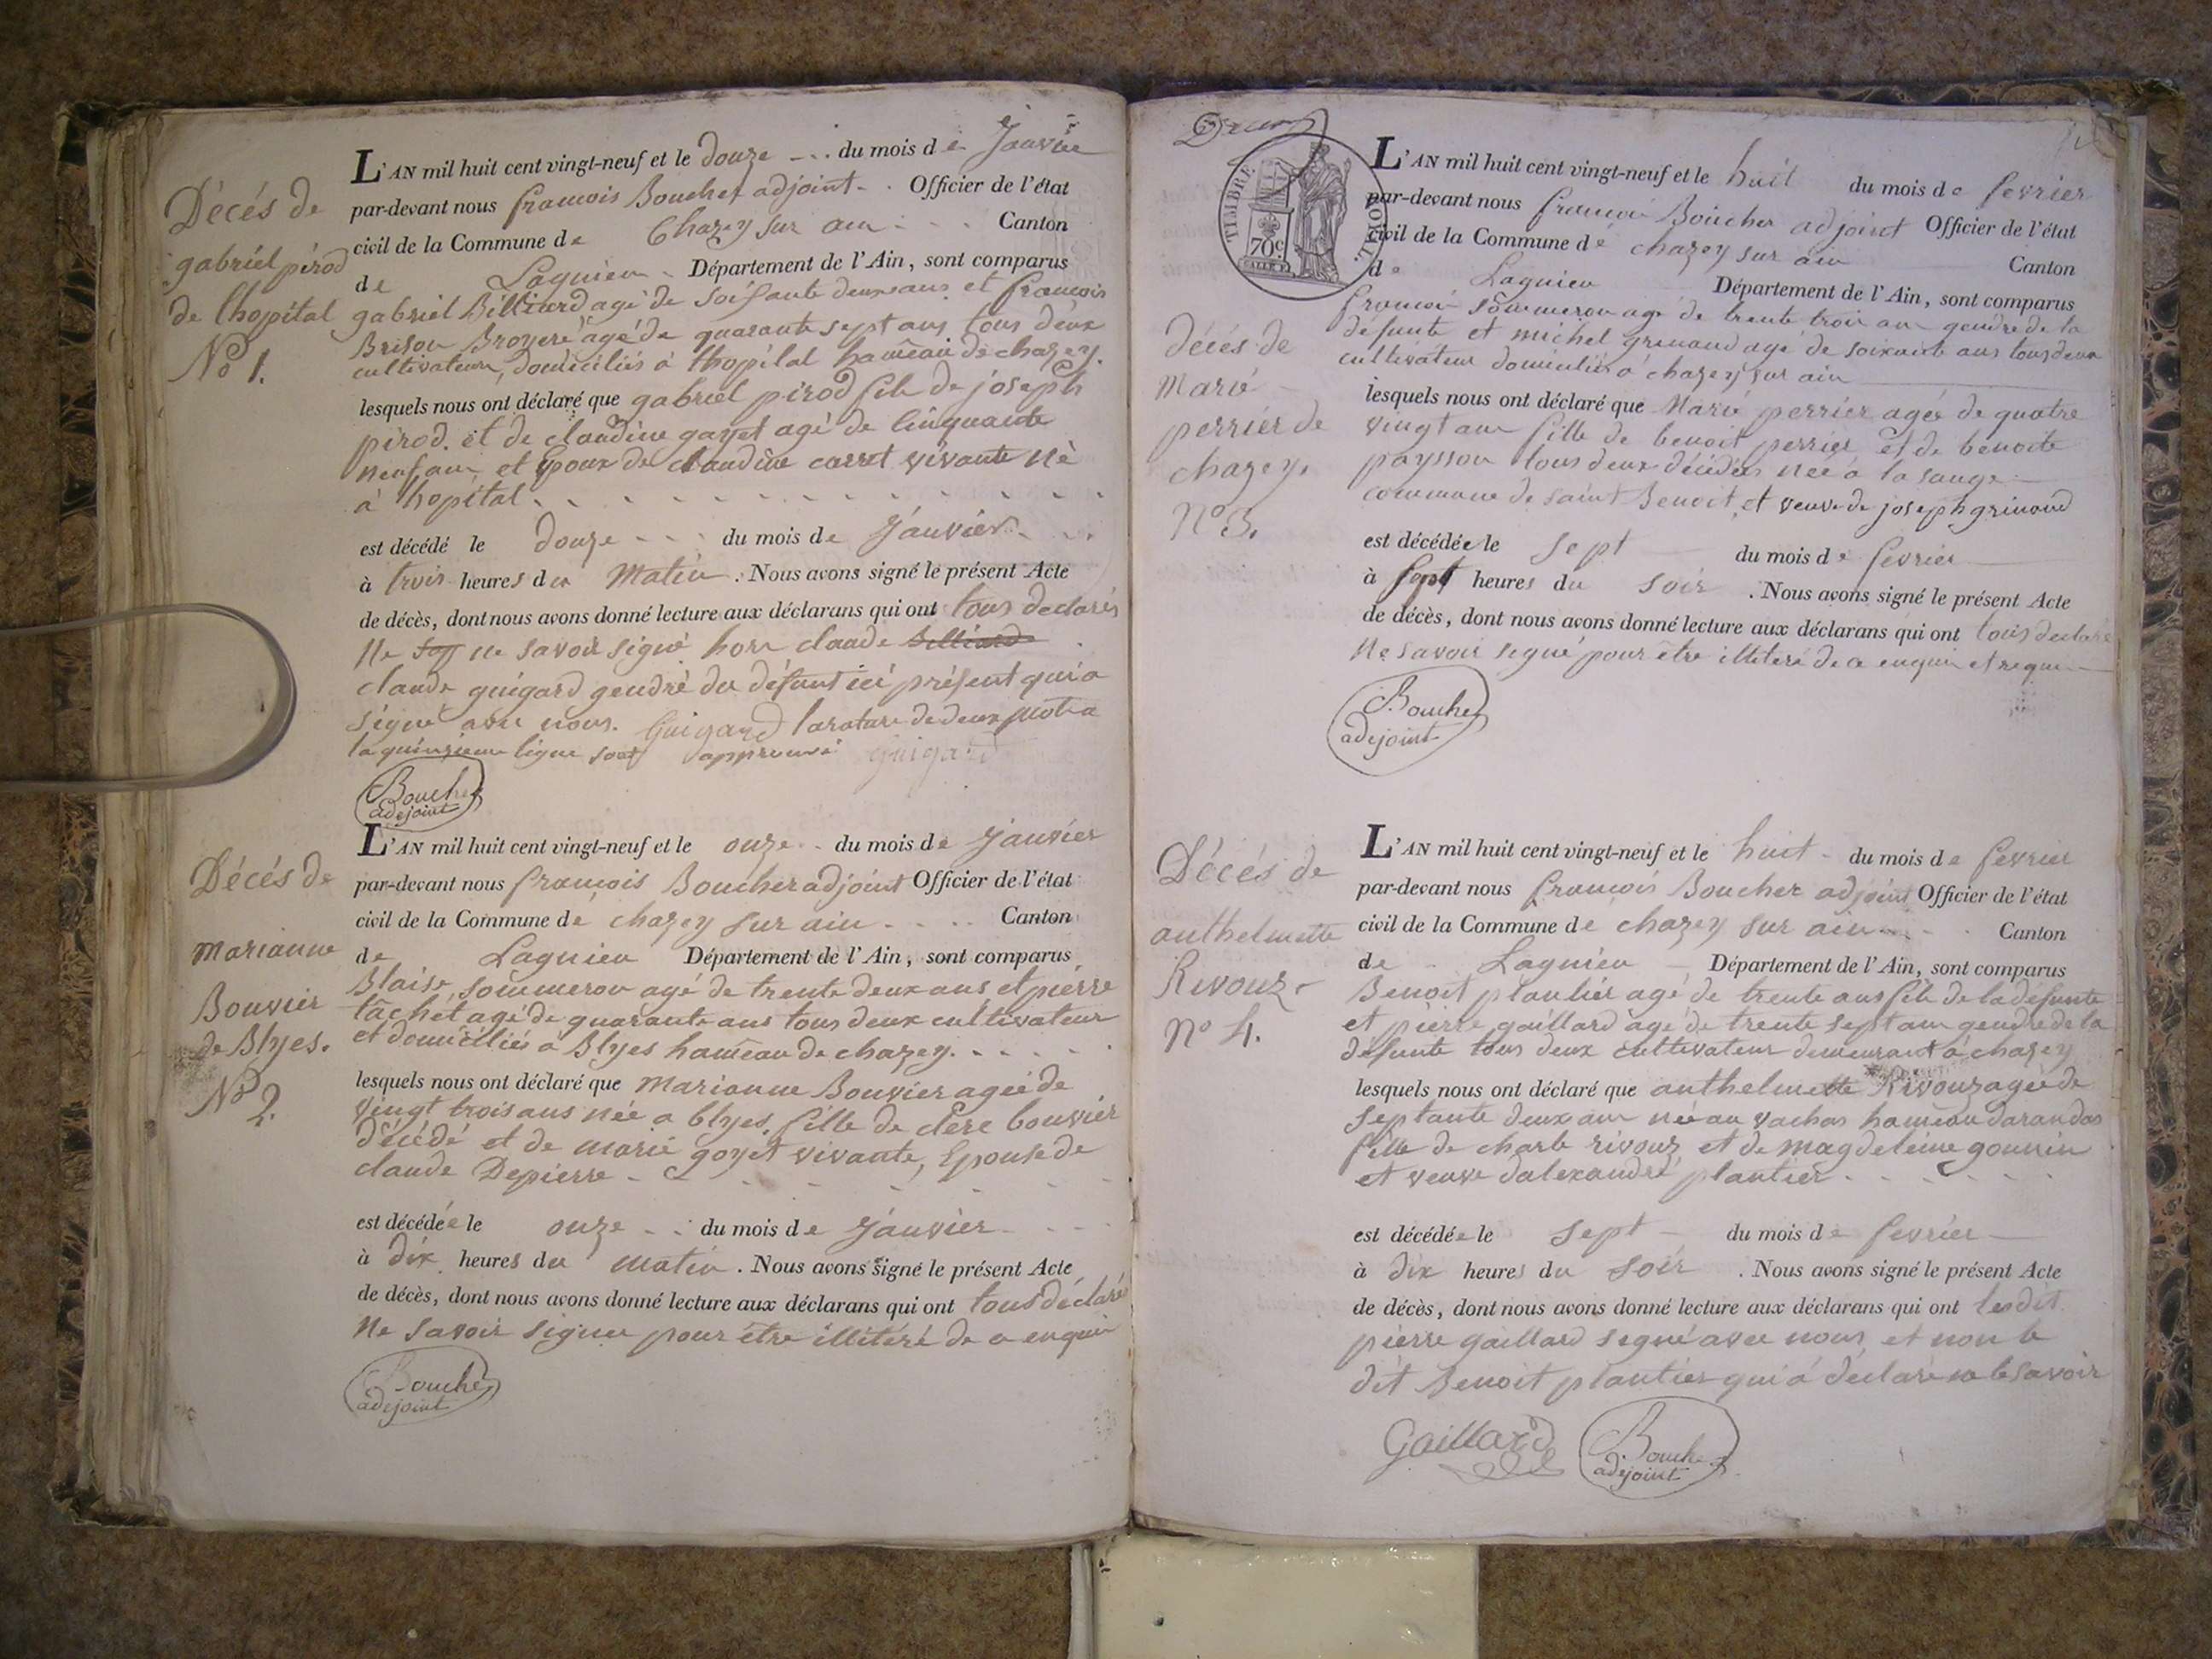 Décés de
gabriel pirod
de lhopital
No 1.
L'AN mil huit cent vingt-neuf et le douze du mois de Janvier
par-devant nous francois Boucher adjoint Officier de l'état
civil de la Commune de Chazey sur ain Canton
de Lagnieu Département de l'Ain, sont comparus
gabriel Billiard agé de soisante deux ans et francois
Brison Broyere agé de quarante sept ans tous deux
cultivateurs, domiciliés à lhopital hameau de chazey.
lesquels nous ont déclaré que gabriel pirod fils de joseph
pirod. et de claudine gayet agé de cinquante
neuf ans et Epoux de claudine carret vivante né
à lhopital
est décédé le douze du mois de Janvier
à trois heures du Matin. Nous avons signé le présent Acte
de décès, dont nous avons donné lecture aux déclarans qui ont tous declarés
Ne ne savoir signé hors claude Billiard
claude guigard gendre du défunt ici présent qui a
signé avec nous. Guigard larature de deux mot a
la quinzieme ligne sont approuvé guigard
Boucher
adejoint
Décés de
marianne
Bouvier
de Blyes.
No 2.
L'AN mil huit cent vingt-neuf et le onze du mois de Janvier
par-devant nous francois Boucher adjoint Officier de l'état
civil de la Commune de chazey sur ain Canton
de Lagnieu Département de l'Ain, sont comparus
Blaise sommeron agé de trente deux ans et pierre
tâchet agé de quarante ans tous deux cultivateur
et domiciliés a Blyes hameau de chazey.
lesquels nous ont déclaré que marianne Bouvier agée de
vingt trois ans née a blyes. fille de bouvier
décédé et de marie goyet vivante, Epouse de
claude Depierre
est décédée le onze du mois de Janvier
à dix heures du matin. Nous avons signé le présent Acte
de décès, dont nous avons donné lecture aux déclarans qui ont tous déclaré
Ne savoir signer pour être illitéré de ce enquis
Boucher
adejoint
TIMBRE ROYAL.
70c
décés de
Marie
perrier de
chazey.
No 3.
L'AN mil huit cent vingt-neuf et le huit du mois de fevrier
par-devant nous francois Boucher adjoint Officier de l'état
civil de la Commune de chazey sur ain
de Lagnieu Canton
Département de l'Ain, sont comparus
francois sommeron agé de trente trois ans gendre de la
defunte et michel grinand agé de soixante ans tous deux
cultivateur domiciliés a chazey sur ain
lesquels nous ont déclaré que Marie perrier agée de quatre
vingt ans fille de benoit perrier et de benoite
paysson tous deux décédés née a la sauge
commune de saint Benoit et veuve de joseph grinand
est décédée le sept du mois de fevrier
à sept heures du soir. Nous avons signé le présent Acte
de décès, dont nous avons donné lecture aux déclarans qui ont tous declaré
Ne savoir signé pour etre illiteré de ce enquis et requis
Boucher
adejoint
Décés de
anthelmette
Rivouz
No 4.
L'AN mil huit cent vingt-neuf et le huit du mois de fevrier
par-devant nous francois Boucher adjoint Officier de l'état
civil de la Commune de chazey sur ain Canton
de Lagnieu Département de l'Ain, sont comparus
Benoit plantier agé de trente ans fils de la defunte
et pierre gaillard agé de trente sept ans gendre de la
défunte tous deux cultivateur demeurant a chazey
lesquels nous ont déclaré que anthelmette Rivouz agée de
septante deux ans née au vachas hameau darandas
fille de charle rivouz et de magdeleine gounin
et veuve dalexandre plantier
est décédée le sept du mois de fevrier
à dix heures du soir. Nous avons signé le présent Acte
de décès, dont nous avons donné lecture aux déclarans qui ont ledit
pierre gaillard signé avec nous et non le
dit Benoit plantier qui a déclaré ne le savoir
Gaillard
Boucher
adejoint